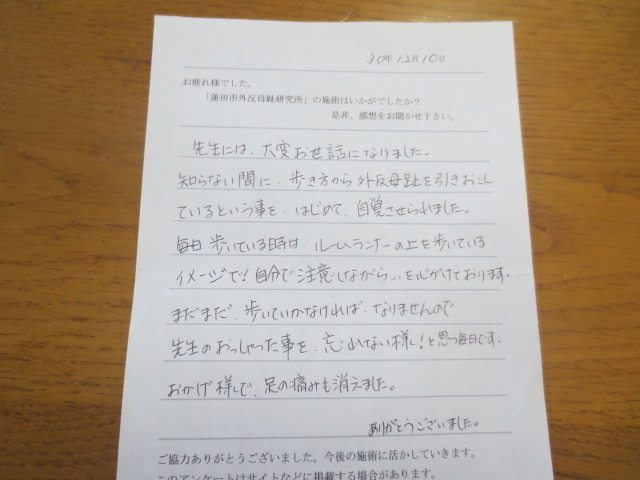 30年12月10日
お疲れ様でした。
「蓮田市外反母趾研究所」の施術はいかがでしたか?
是非、感想をお聞かせ下さい。
先生には、大変お世話になりました。
知らない間に、歩き方から外反母趾を引きおこし
ているという事を、はじめて、自覚させられました。
毎日歩いている時は、ルームランナーの上を歩いている
イメージで!自分で注意しながら…を心がけております。
まだまだ、歩いていかなければ、なりませんので
先生のおっしゃった事を、忘れない様!と思う毎日です。
おかげ様で、足の痛みも消えました。
ありがとうございました。
ご協力ありがとうございました。今後の施術に活かしていきます。
このアンケートはサイトなどに掲載する場合があります。